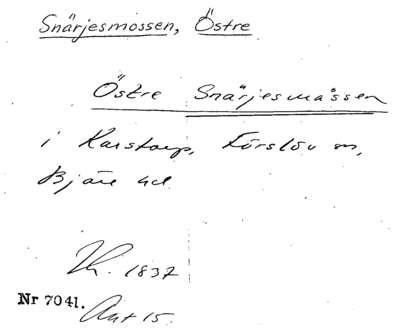 Snärjesmossen, Östre
Östre Snärjesmåssen
i Karstorp, Förslöv sn,
Bjäre hd
Lh. 1837
Nr 7041.
Akt 15.